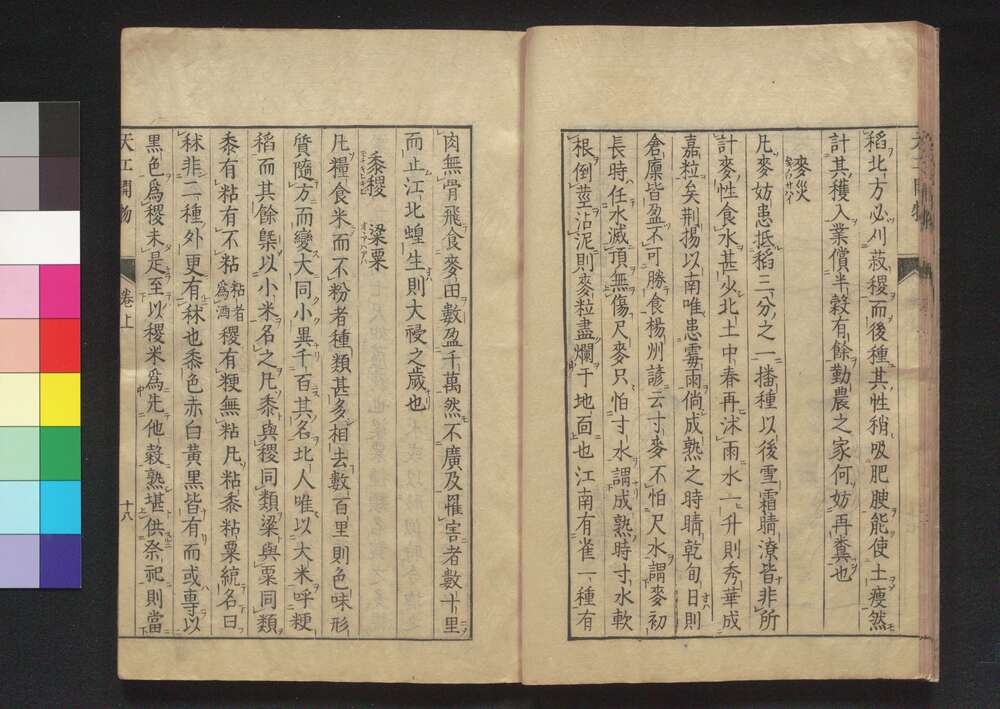 稻北方必刈菽稷而後種其性稍吸肥腴能使土瘦然
計其穫入業償半穀有餘勤農之家何妨再糞也
麥災
凡麥妨患抵稻三分之一播種以後雪霜晴潦皆非所
計麥性食水甚少北土中春再沐雨水一升則秀華成
嘉粒矣荆揚以南唯患霉雨倘成熟之時晴乾旬日則
倉廩皆盈不可勝食楊州諺云寸麥不怕尺水謂麥初
長時任水滅頂無傷尺麥只怕寸水謂成熟時寸水軟
根倒莖沾泥則麥粒盡爛于地面也江南有雀一種有
肉無骨飛食麥田數盈千萬然不廣及罹害者數十里
而止江北蝗生則大祲之歲也
黍稷 粱粟
凡糧食米而不粉者種類甚多相去數百里則色味形
質隨方而變大同小異千百其名北人唯以大米呼粳
稻而其餘槩以小米名之凡黍與稷同類粱與粟同類
黍有粘有不粘粘者爲酒稷有粳無粘凡粘黍粘粟統名曰
秫非二種外更有秫也黍色赤白黃黑皆有而或專以
黑色爲稷未是至以稷米爲先他穀熟堪供祭祀則當
天工開物 卷上 十八